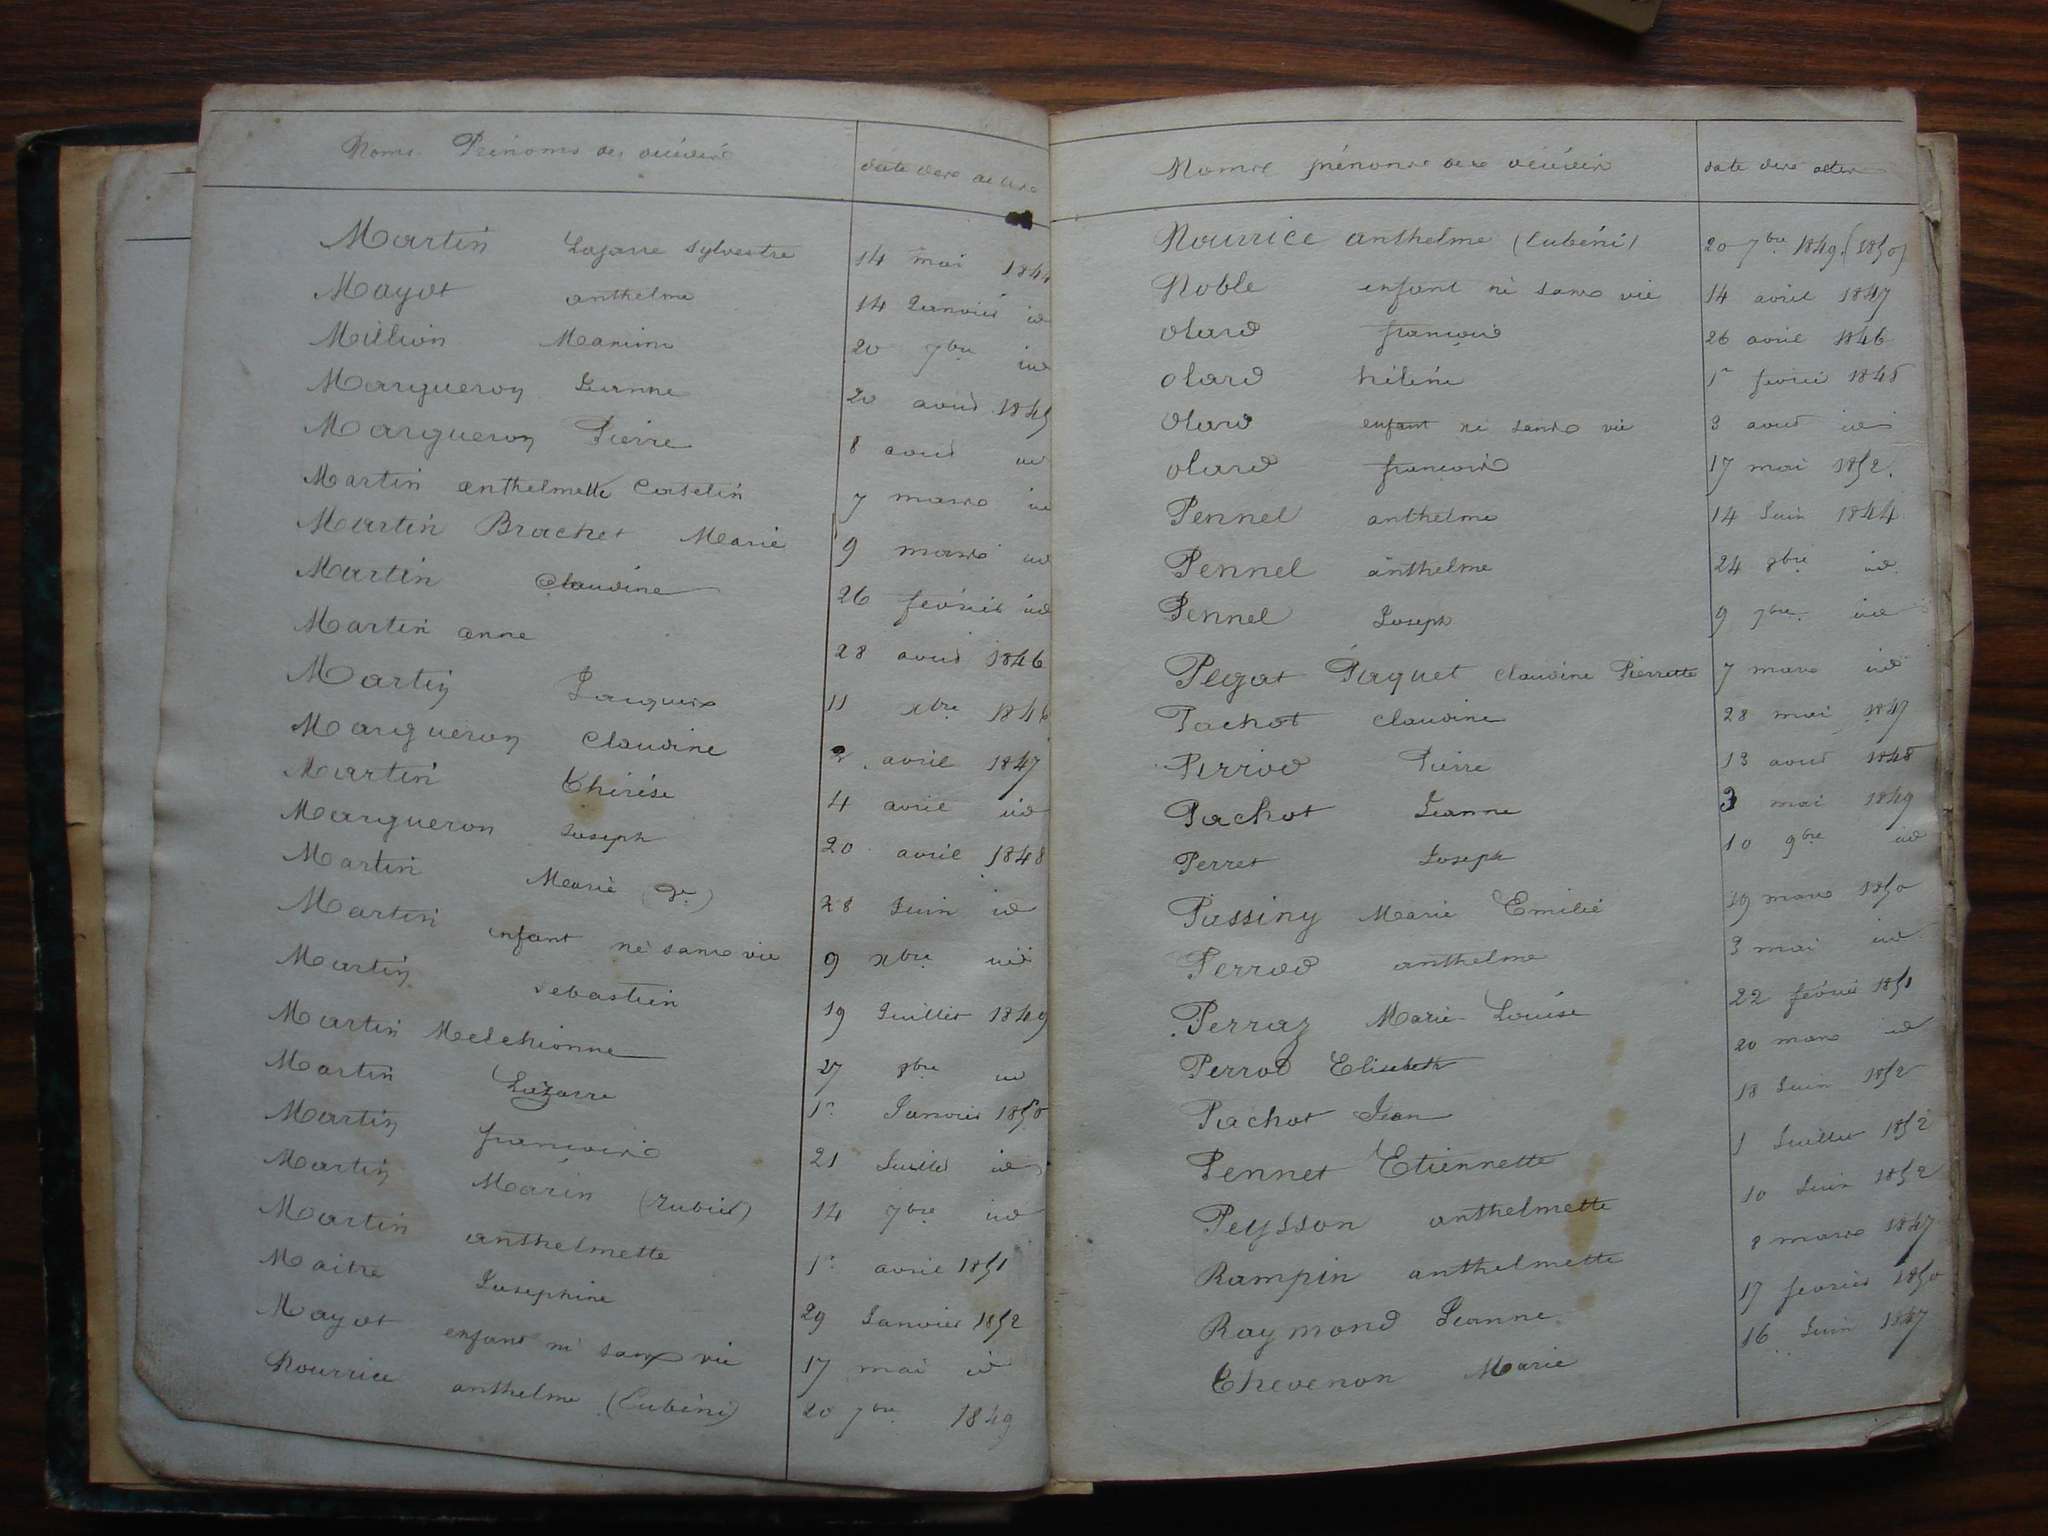 Noms Prénoms des décédés date des actes
Martin Lazarre Sylvestre 14 mai 1844
Mayot anthelme 14 Janvier id
Million Marie 20 7bre id
Margueron Jeanne 20 aoud 1845
Margueron Pierre 8 aoud id
Martin anthelmette Casselin 7 mars id
Martin Brachet Marie 9 mars id
Martin Claudine 26 fevrier id
Martin anne 28 aoud 1846
Martin Jacques 11 xbre 1846
Margueron Claudine 2 avril 1847
Martin Thérése 4 avril id
Margueron Joseph 20 avril 1848
Martin Marie 28 Juin id
Martin enfant né sans vie 9 xbre id
Martin Sebastien 19 Juillet 1849
Martin Melchionne 27 8bre id
Martin Lazarre 1r Janvier 1850
Martin françois 21 Juillet id
Martin Marin (rubin) 14 7bre id
Martin anthelmette 1r avril 1851
Maitre Josephine 29 Janvier 1852
Mayot enfant né sans vie 17 mai id
Nourrice anthelme (Lubéni) 20 7bre 1849
Noms prénoms des décédés date des actes
Nourrice anthelme (Lubéni) 20 7bre 1849 (1850)
Noble enfant né sans vie 14 avril 1847
olard françois 26 avril 1846
olard hélène 1r fevrier 1848
olard enfant né sans vie 3 aoud id
olard françois 17 mai 1852
Pennel anthelme 14 Juin 1844
Pennel anthelme 24 8bre id
Pennel Joseph 9 7bre id
Pegat Paquet claudine Pierrette 7 mars id
Pachot claudine 28 mai 1847
Perrod Pierre 13 aoud 1848
Pachot Jeanne 3 mai 1849
Perret Joseph 10 9bre id
Passiny Marie Emilie 19 mars 1850
Perrod anthelme 3 mai id
Perraz Marie Louise 22 fevrier 1851
Perrod Elisabeth 20 mars id
Pachot Jean 18 Juin 1852
Pennet Etiennette 1 Juillet 1852
Peysson anthelmette 10 Juin 1852
Rampin anthelmette 8 mars 1847
Raymond Jeanne 17 fevrier 1850
Thevenon Marie 16 Juin 1847